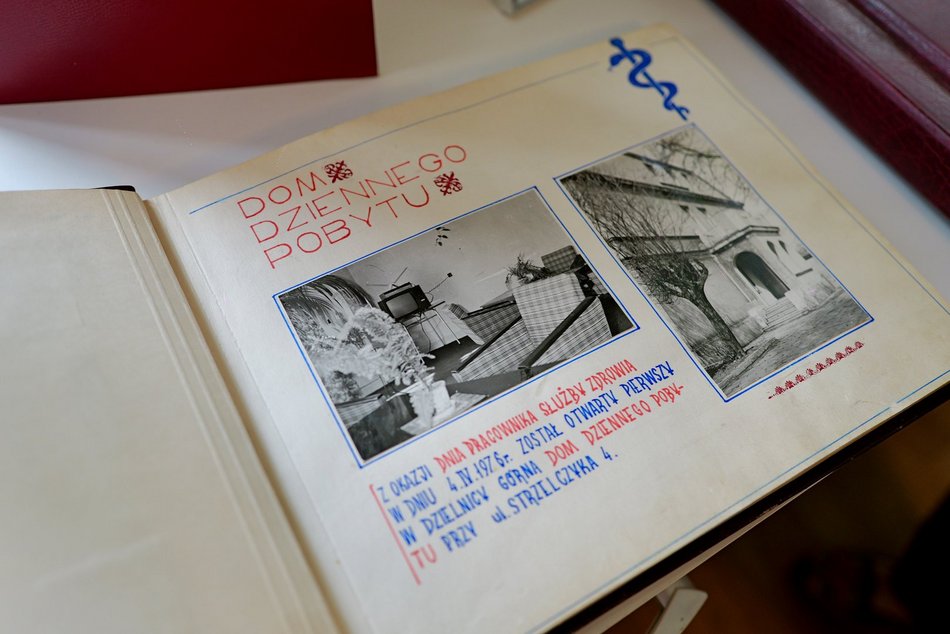 DOM
DZIENNEGO
POBYTU
Z OKAZJI DNIA PRACOWNIKA SŁUŻBY ZDROWIA
W DNIU 4.IV.1976r. ZOSTAŁ OTWARTY PIERWSZY
W DZIELNICY GÓRNA DOM DZIENNEGO POBY-
TU PRZY ul. STRZELCZYKA 4.